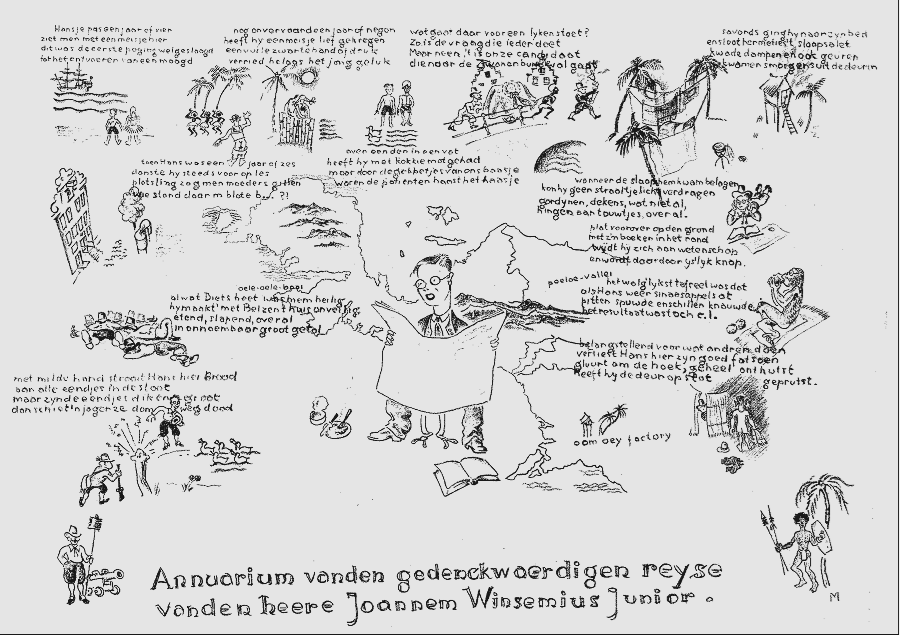 Hansje pas een jaar of vier
ziet men met een meisje hier
dit was de eerste poging welgeslaagd
tot het ontvoeren van een maagd
nog onvervaard een jaar of negen
heeft hy een meisje lief gekregen
een vuile zwarte hand of druk
verried helaas het jong geluk
wat gaat daar voor een lyken stoet?
Zo is de vraag die ieder doet
Meer neen, 't is onze candidaat
die naar de Zwanenburgwal gaat
savonds ging hy naar zyn bed
en sloot hermetisch 't slaapsalet
kwade dampen en ook geuren
kwamen smorgens uit de deuren
toen Hans was een jaar of zes
danste hy steeds voor op les
plotsling zag men moeders gillen
hoe stond daar m blote b... ?!
over eenden in een vat
heeft hy mot kokkie mot gehad
maar door de glebbetjes van ons baasje
waren de patienten haast het haasje
wanneer de slaap hem kwam belagen
kon hy geen straaltje licht verdragen
gordynen, dekens, wat niet al,
hingen aan touwtjes, overal.
plat voorover op den grond
met z'n boeken in het rond
wydt hy zich aan wetenschap
en wordt daardoor ys'lyk knap.
poeloe-vallei
het walg'lykst tafreel was dat
als Hans weer sinaesappels at
pitten spuwde en schillen knauwde
het resultaat was toch e.l.
oele-oele-baai
al wat Diets heet is hem heilig
hy maakt' met Belzen 't huis onveilig,
etend, slapend, overal
in onnoembaar groot getal
belangstellend voor wat andren doen
verliest Hans hier zyn goed fatsoen
gluurt om de hoek, geheel onthutst
heeft hy de deur op slot
geprutst.
met milde hand strooit Hans hier brood
aan alle eendjes in de sloot
maar zyn de eendjes dik en groot
dan schiet'n jager ze dom weg dood
oom oey factory
M
Annuarium vanden gedenckwaerdigen reyse
vanden heere Joannem Winsemius Junior.